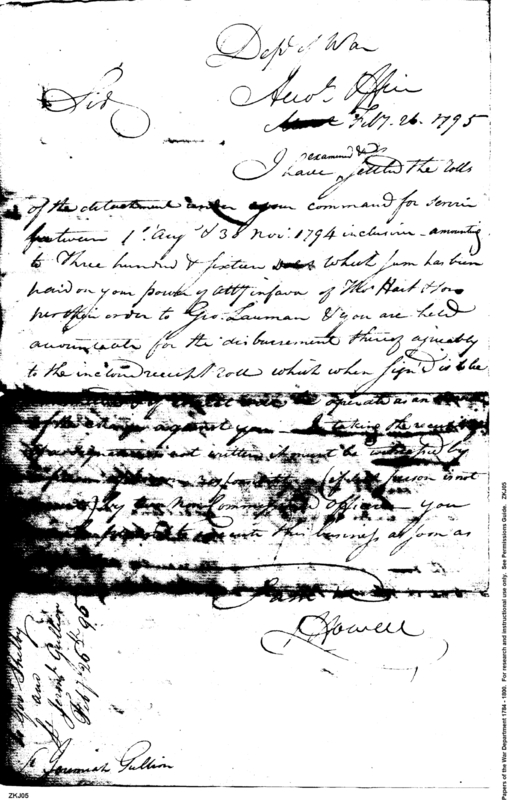 Dept of War
Sir
Acco.ts Office
Feb.y 26. 1795
I have examined & settled the rolls
of the detachment under your command for service
between 1st Aug & 30 Nov. 1794 inclusive - amounting
to Three hundred & sixteen which sum has been
paid on your power of Atty in favor of Tho.s Hart & Son
per their order to Geo. Lauman & you are held
accountable for the disbursement thereof agreeably
to the inclosed receipt roll which when sign'd is to be
operate as an
of the charge against you - In taking the
signatures not written it must be witnessed by
person is not
by two Non Commissioned Officers you
to execute this business as soon as
I am
J Howell
to Gov. Shelby
and
Lt Jeremiah Gullion
Feby 26th 95
Lt Jeremiah Gullion
ZKJ05
Papers of the War Department 1784 - 1800. For research and instructional use only. See Permissions Guide. ZKJ05